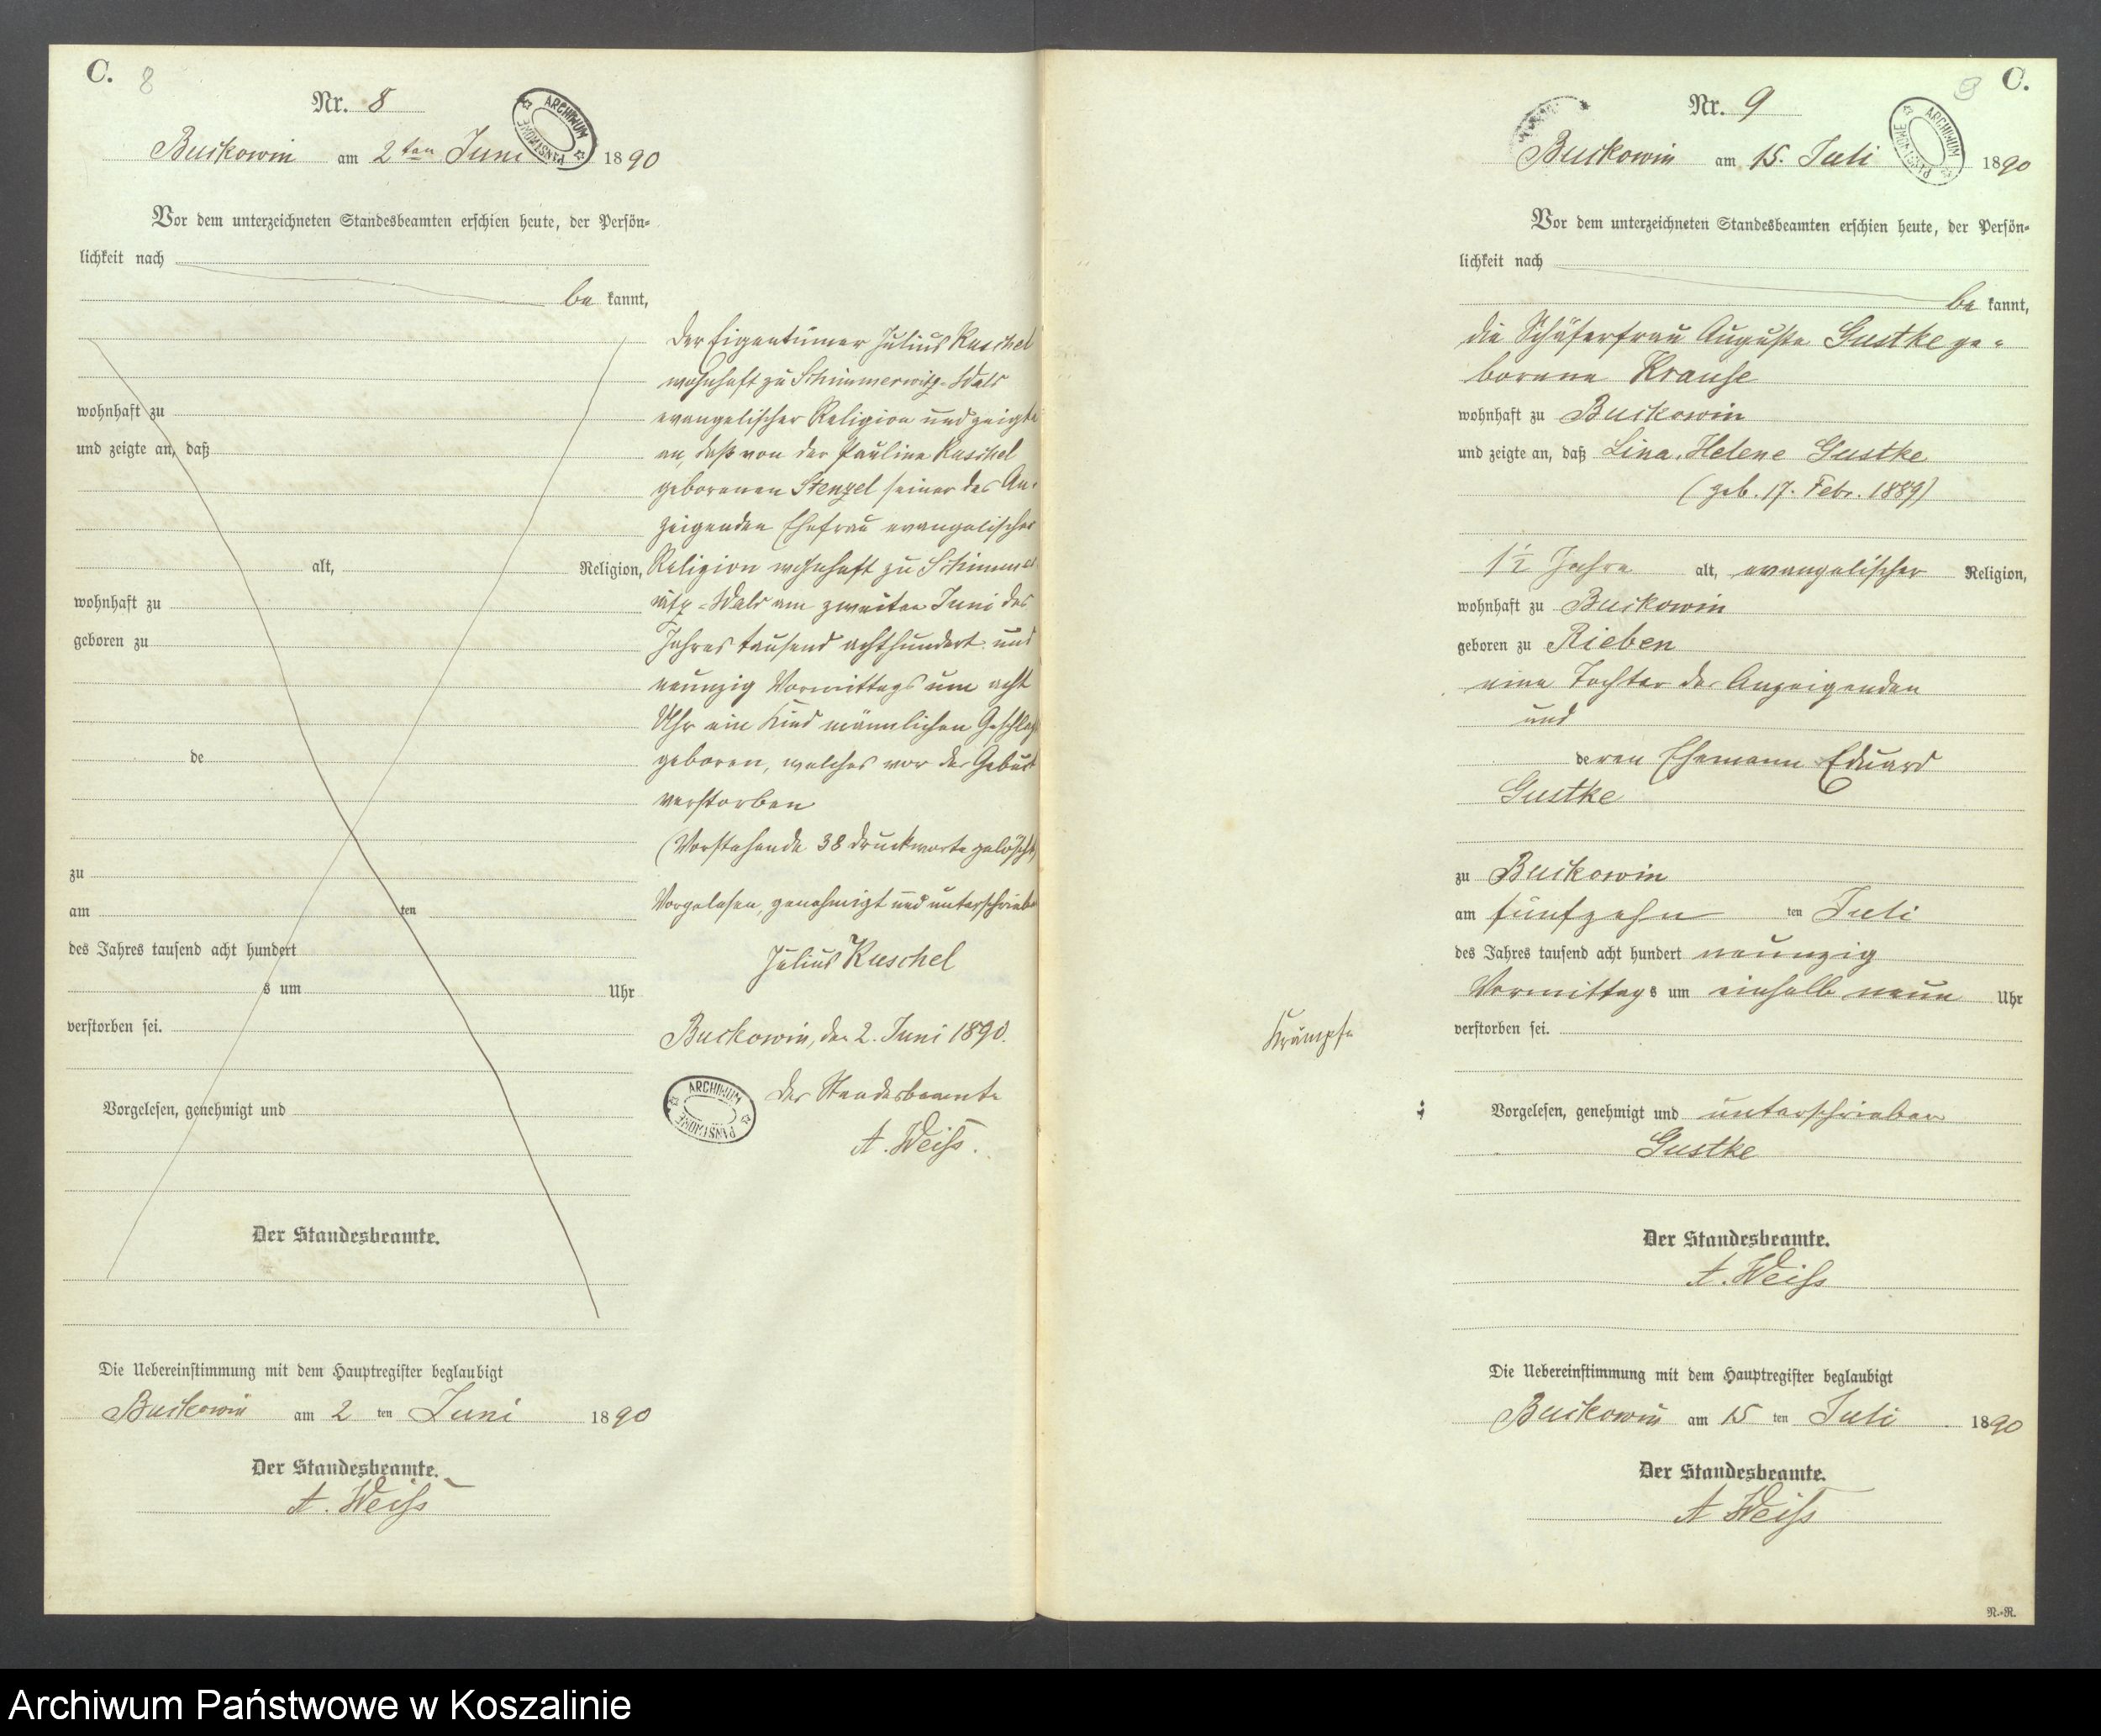 C. 8
Nr. 8
ARCHIWUM PAŃSTWOWE
Buckowin am 2ten Juni 1890
Vor dem unterzeichneten Standesbeamten erschien heute, der Persön-
lichkeit nach
be kannt,
wohnhaft zu
und zeigte an, daß
alt, Religion,
wohnhaft zu
geboren zu
de
zu
am ten
des Jahres tausend acht hundert
s um Uhr
verstorben sei.
Vorgelesen, genehmigt und
Der Standesbeamte.
Die Uebereinstimmung mit dem Hauptregister beglaubigt
Buckowin am 2 ten Juni 1890
Der Standesbeamte.
A. Weiß
der Eigentümer Julius Kuschel
wohnhaft zu Schimmerwitz-Wals
evangelischer Religion und zeigte
an, daß von der Pauline Kuschel
geborenen Stenzel seiner des An-
zeigenden Ehefrau evangelischer
Religion wohnhaft zu Schimmer
witz-Wals am zweiten Juni des
Jahres tausend achthundert und
neunzig Vormittags um acht
Uhr ein Kind männlichen Geschlechts
geboren, welches vor der Geburt
verstorben
(Vorstehende 38 Druckworte gelöscht)
Vorgelesen, genehmigt und unterschrieben
Julius Kuschel
Buckowin, den 2. Juni 1890.
ARCHIWUM PAŃSTWOWE
Der Standesbeamte
A. Weiß.
9 C.
Nr. 9
ARCHIWUM PAŃSTWOWE
Buckowin am 15. Juli 1890
Vor dem unterzeichneten Standesbeamten erschien heute, der Persön-
lichkeit nach
be kannt,
die Schäferfrau Auguste Gustke ge-
borene Krause
wohnhaft zu Buckowin
und zeigte an, daß Lina, Helene Gustke
(geb. 17. Febr. 1889)
1 1/2 Jahre alt, evangelischer Religion,
wohnhaft zu Buckowin
geboren zu Rieben
eine Tochter der Anzeigenden
und
deren Ehemann Eduard
Gustke
zu Buckowin
am fünfzehn ten Juli
des Jahres tausend acht hundert neunzig
Vormittags um einhalb neun Uhr
verstorben sei.
Krämpfe
Vorgelesen, genehmigt und unterschrieben
Gustke
Der Standesbeamte.
A. Weiß
Die Uebereinstimmung mit dem Hauptregister beglaubigt
Buckowin am 15 ten Juli 1890
Der Standesbeamte.
A Weiß
N.-R.
Archiwum Państwowe w Koszalinie